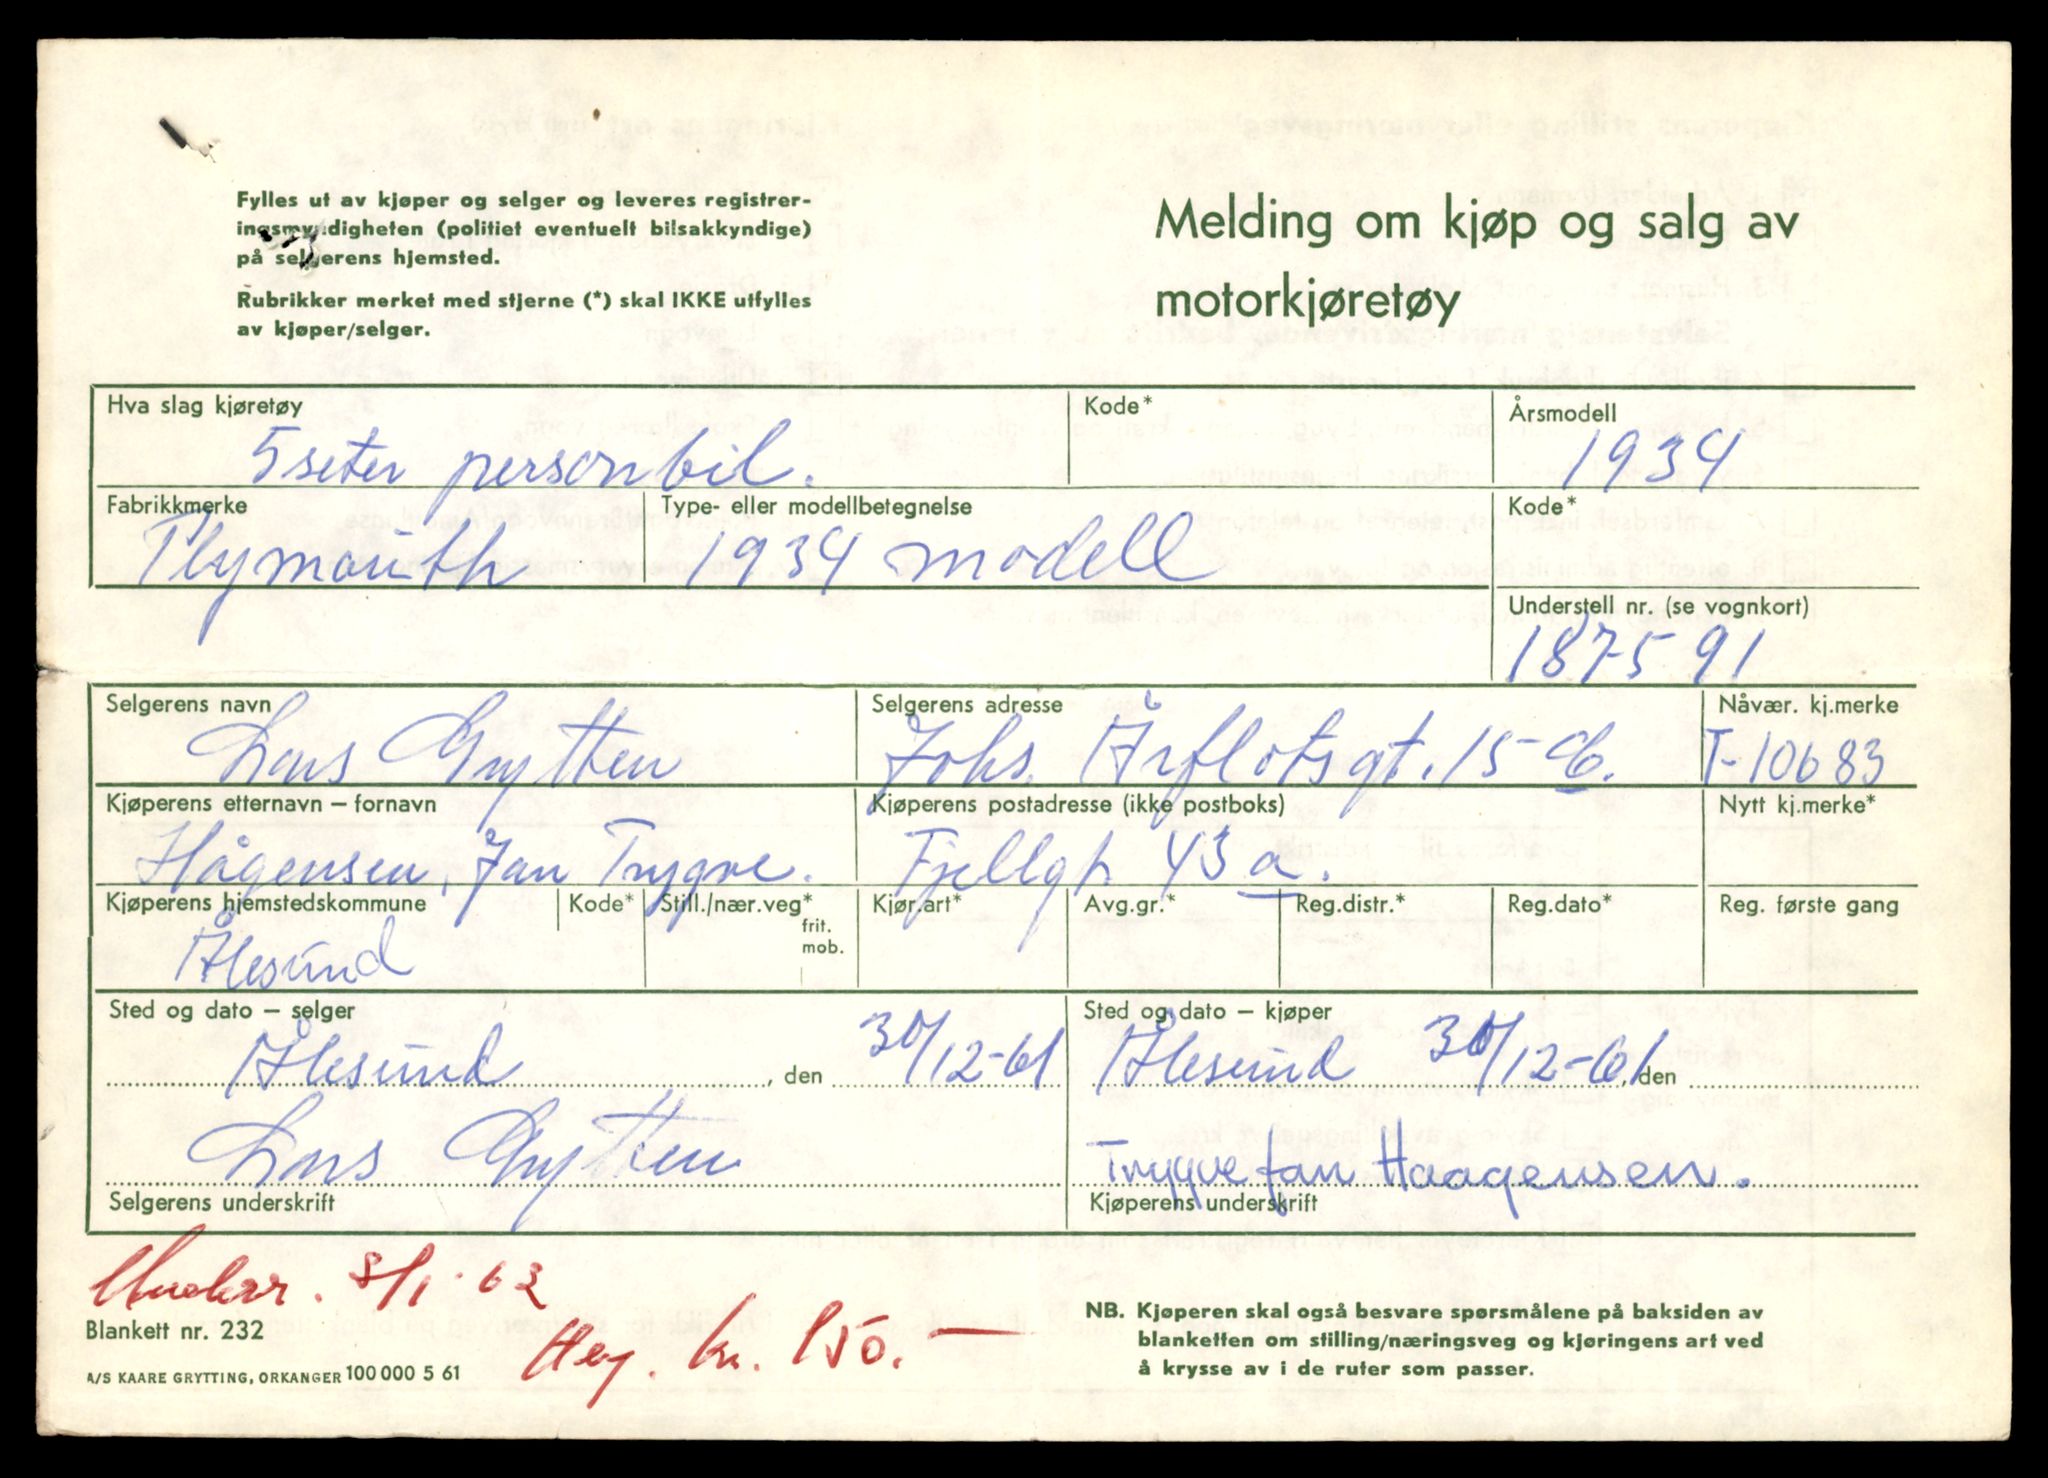 Fylles ut av kjøper og selger og leveres registrer-
ingsmyndigheten (politiet eventuelt bilsakkyndige)
på selgerens hjemsted.
Rubrikker merket med stjerne (*) skal IKKE utfylles
av kjøper/selger.
Melding om kjøp og salg av
motorkjøretøy
Hva slag kjøretøy Kode* Årsmodell
5 seter personbil. 1934
Fabrikkmerke Type- eller modellbetegnelse Kode*
Plymouth 1934 modell
Understell nr. (se vognkort)
1875591
Selgerens navn Selgerens adresse Nåvær. kj.merke
Lars Grytten Johs. Årflotsgt. 15-B. T-10683
Kjøperens etternavn – fornavn Kjøperens postadresse (ikke postboks) Nytt kj.merke*
Hågensen, Jan Trygve. Fjellgt. 43 a.
Kjøperens hjemstedskommune Kode* Still./nær.veg* frit. mob. Kjør.art* Avg.gr.* Reg.distr.* Reg.dato* Reg. første gang
Ålesund
Sted og dato – selger Sted og dato – kjøper
Ålesund, den 30/12-61 Ålesund 30/12-61, den
Lars Grytten Trygve Jan Haagensen.
Selgerens underskrift Kjøperens underskrift
8/1-62
kr. 150.-
Blankett nr. 232
A/S KAARE GRYTTING, ORKANGER 100 000 5 61
NB. Kjøperen skal også besvare spørsmålene på baksiden av
blanketten om stilling/næringsveg og kjøringens art ved
å krysse av i de ruter som passer.